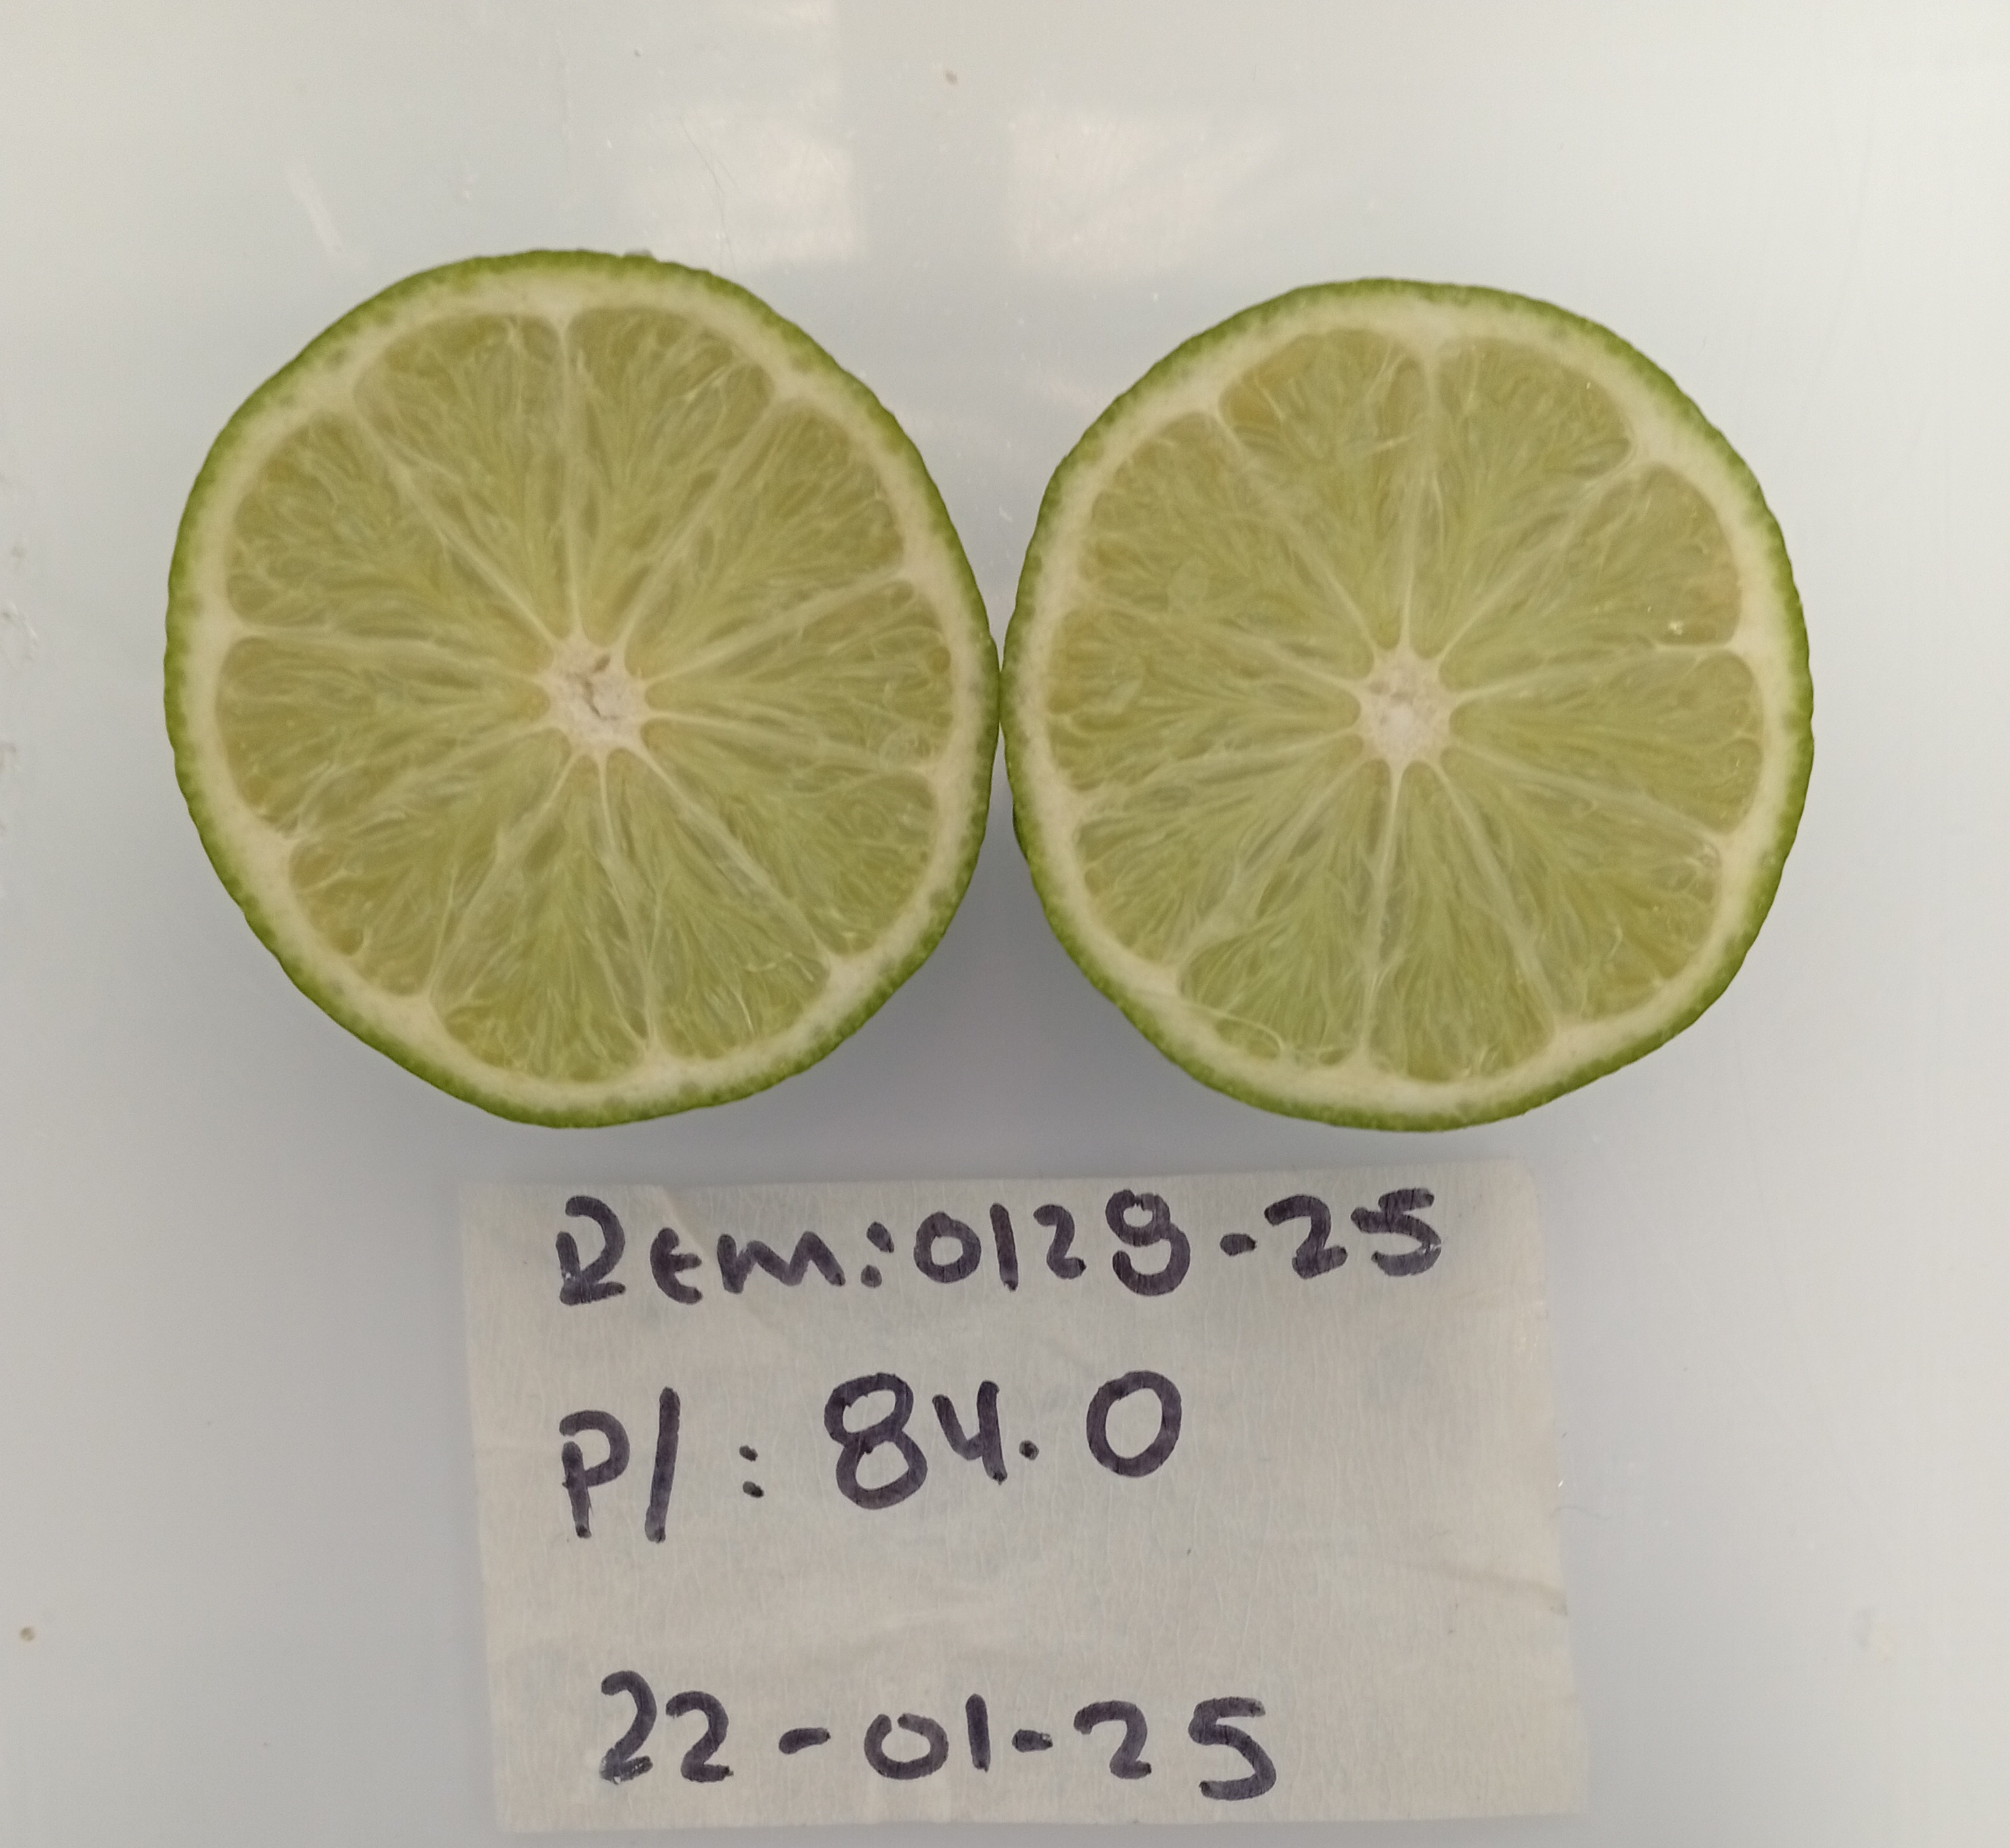 Rem:0129-25
P/: 84.0
22-01-25